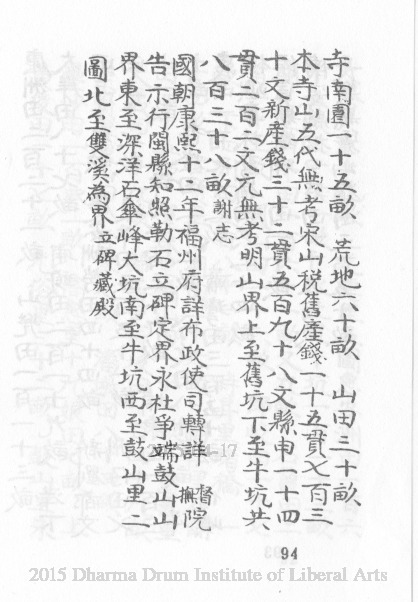 寺南園一十五畝　荒地六十畝　山田三十畝
本寺山五代無考宋山税舊產錢一十五貫七百三
十文新產錢三十二貫五百九十八文縣申一十四
貫二百二文元無考明山界上至舊坑下至牛坑共
八百三十八畝謝志
國朝康熙十二年福州府詳布政使司轉詳督撫院
告示行閩縣知照勒石立碑定界永杜爭端鼓山山
界東至深洋石傘峰大坑南至牛坑西至鼓山里二
圖北至雙溪為界立碑藏殿
94
2015 Dharma Drum Institute of Liberal Arts